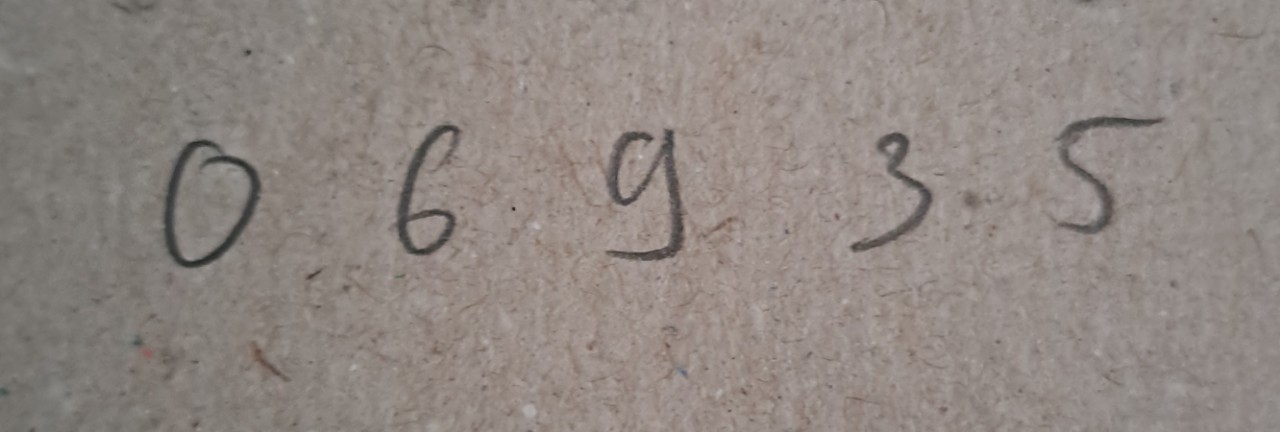 0 6 9 3 5